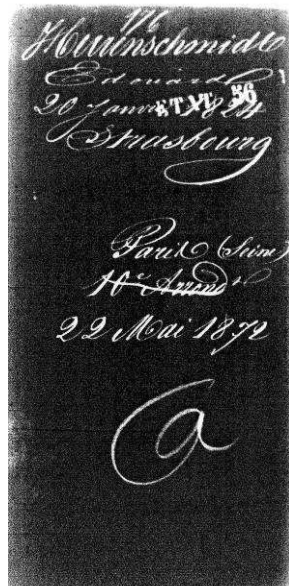 176
Herrenschmidt
Edouard
20 Janvier 1824
ETAT 56
Strasbourg
Paris (Seine)
10e Arrondt
22 Mai 1872
a